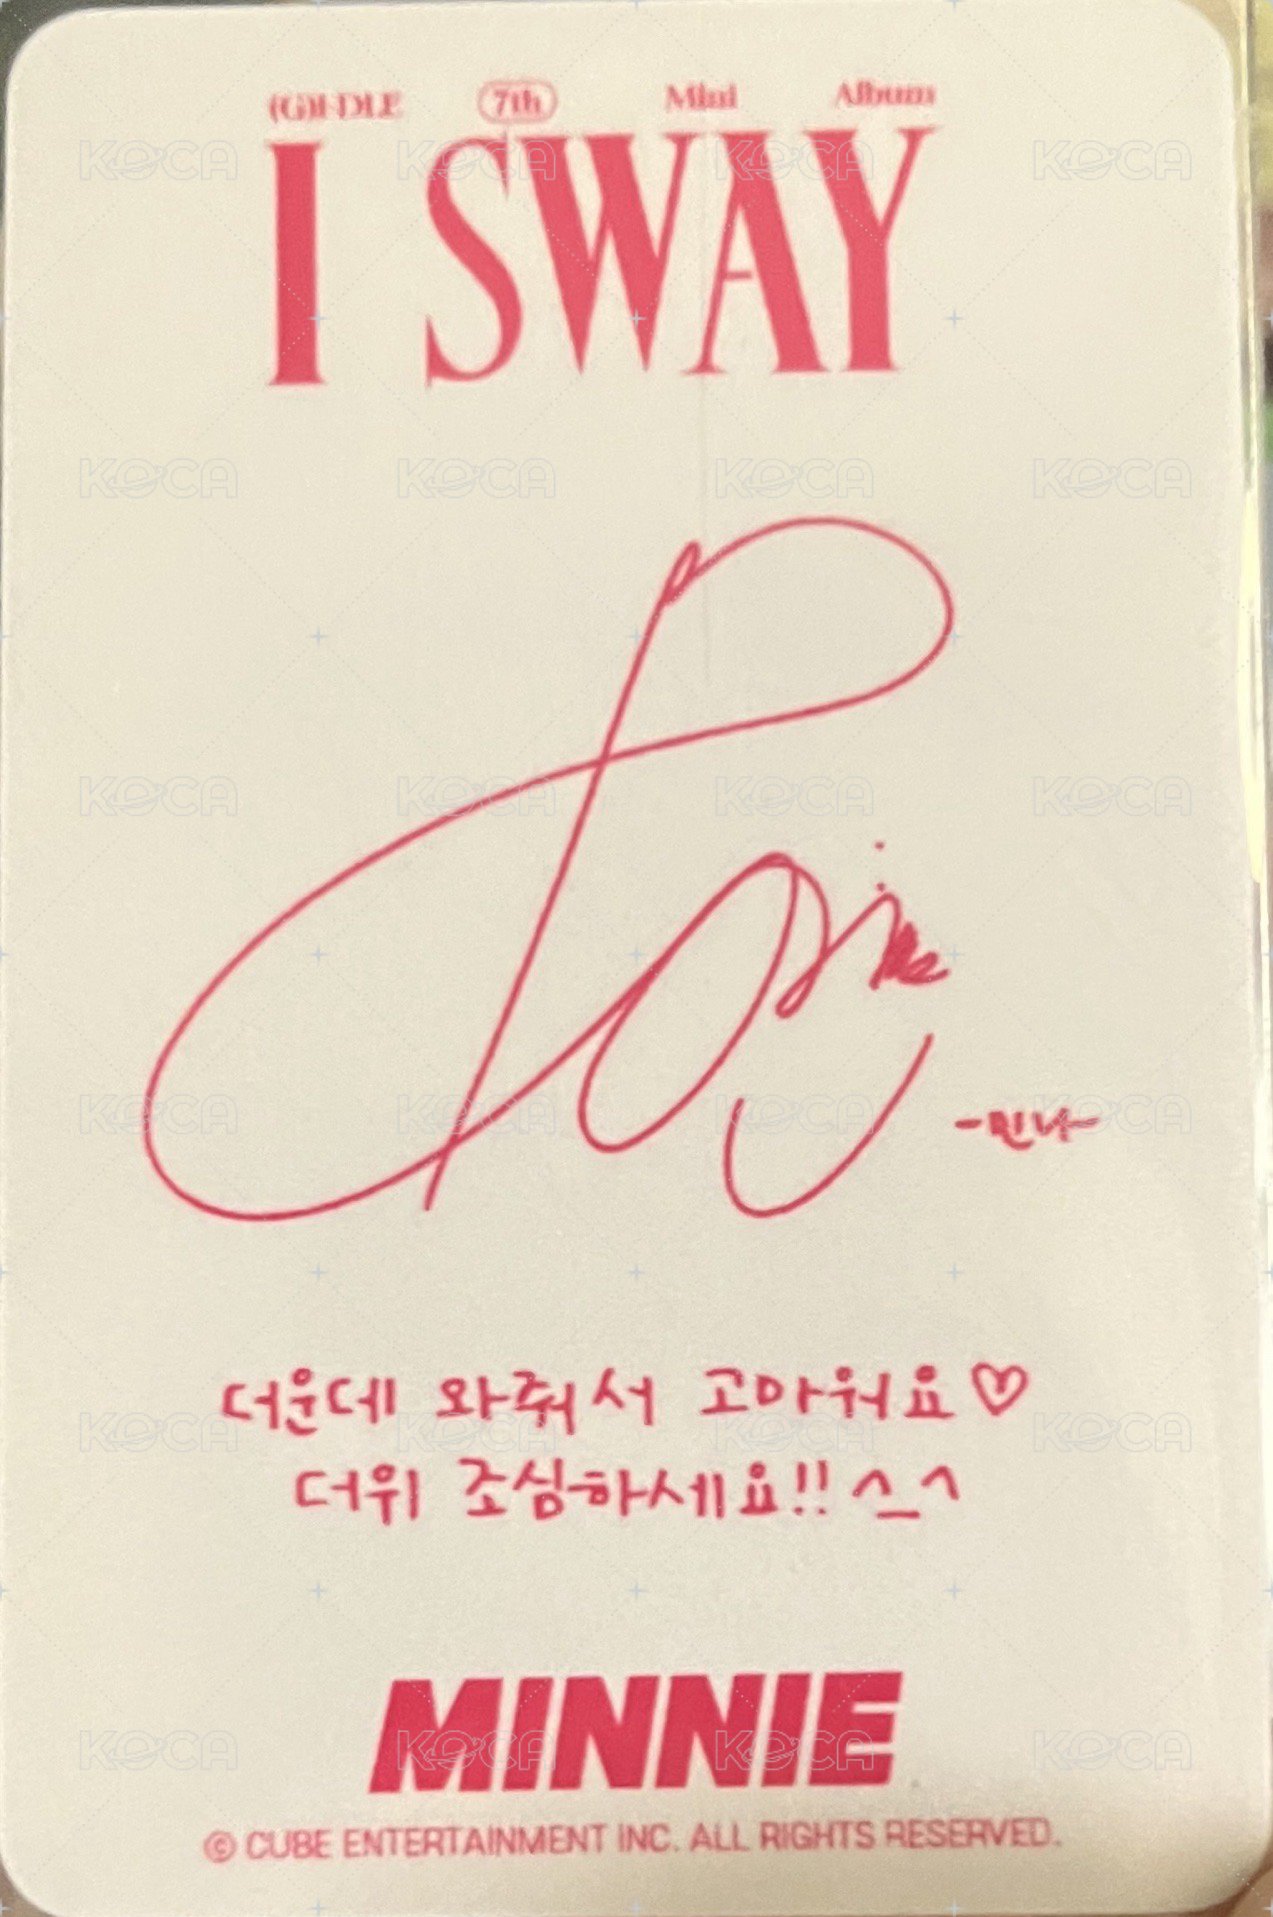 (G)I-DLE 7th Mini Album
I SWAY
-민니-
더운데 와줘서 고마워요♡
더위 조심하세요!! ^_^
MINNIE
© CUBE ENTERTAINMENT INC. ALL RIGHTS RESERVED.
KOCA